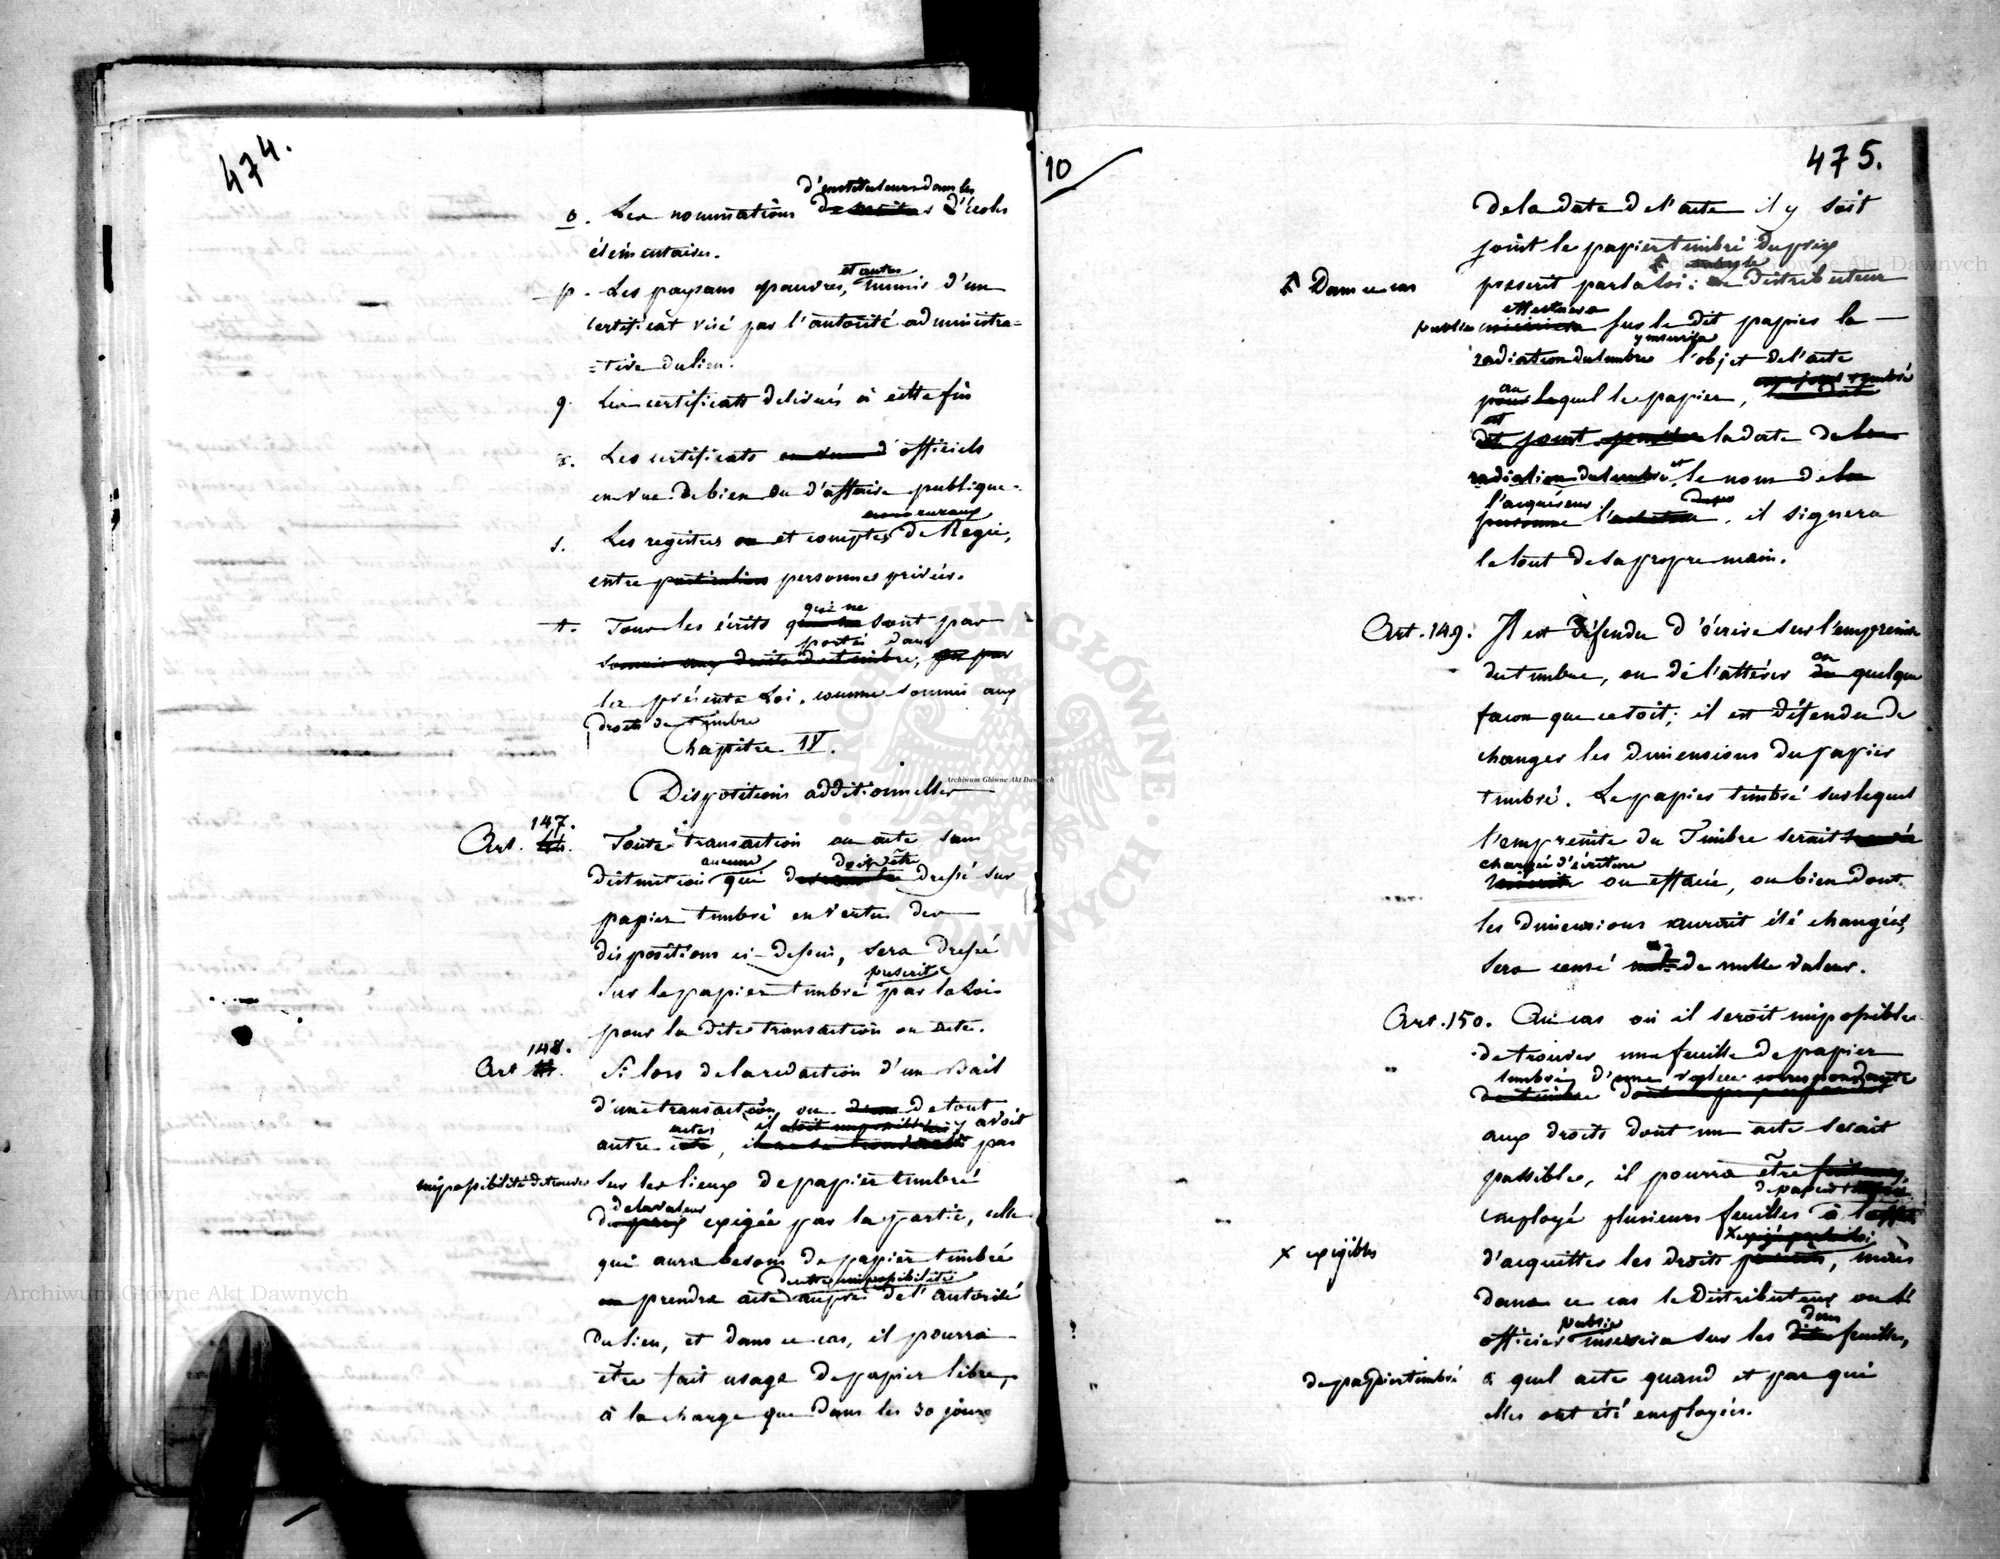 474.
d'instituteurs dans les
o. Les nominations d'écoles
élémentaires.
et autres
p. Les paysans pauvres, munis d'un
certificat visé par l'autorité administra=
=tive du lieu.
q. Les certificats delivrés à cette fin
r. Les certificats d'officiels
en vue de bien ou d'affaire publique.
s. Les registres et comptes de Regie,
entre particuliers personnes privées.
qui ne
t. Tous les écrits sont pas
portés dans
soumis aux droits de timbre,
la présente Loi, comme soumis aux
droits de timbre
Chapitre IV.
Dispositions additionnelles
147.
Art. Toute transaction ou acte sans
aucune doit être
distinction qui dressé sur
papier timbré en vertu des
dispositions ci-dessus, sera dressé
prescrit
sur le papier timbré par la Loi
pour la dite transaction ou acte.
148.
Art. Si lors de la redaction d'un Bail
d'une transaction, ou de tout
actes il y avoit
autre acte, pas
impossibilité de trouver sur les lieux de papier timbré
de la valeur
du prix exigée par la partie, celle
qui aura besoin de papier timbré
de cette impossibilité
prendra acte auprès de l'autorité
du lieu, et dans ce cas, il pourra
être fait usage de papier libre,
à la charge que dans les 30 jours
10
475.
de la date de l'acte il y soit
joint le papier timbré du prix
Dans ce cas prescrit par la Loi: le Distributeur
public sur le dit papier la
y inscrira
radiation du timbre l'objet de l'acte
au
pour lequel le papier,
est
dit joint la date de la
radiation du timbre et le nom de la
l'acquéreur
personne il signera
le tout de sa propre main.
Art. 149. Il est défendu d'écrire sur l'empreinte
du timbre, ou de l'altérer en quelque
façon que ce soit; il est défendu de
changer les dimensions du papier
timbré. Le papier timbré sur lequel
l'empreinte du Timbre serait
chargée d'écriture
ou effacée, ou bien dont
les dimensions auroit été changées,
sera censé de nulle valeur.
Art. 150. Au cas où il seroit impossible
de trouver une feuille de papier
timbré d'une valeur correspondante
de timbre
aux droits dont un acte serait
passible, il pourra être
de papier
employé plusieurs feuilles à
x exigibles d'acquitter les droits, mais
dans ce cas le Distributeur ou l'
public
officier inserira sur les dites feuilles,
de papier timbré à quel acte quand et par qui
elles ont été employées.
Archiwum Główne Akt Dawnych
Archiwum Główne Akt Dawnych
Archiwum Główne Akt Dawnych
ARCHIWUM GŁÓWNE AKT DAWNYCH